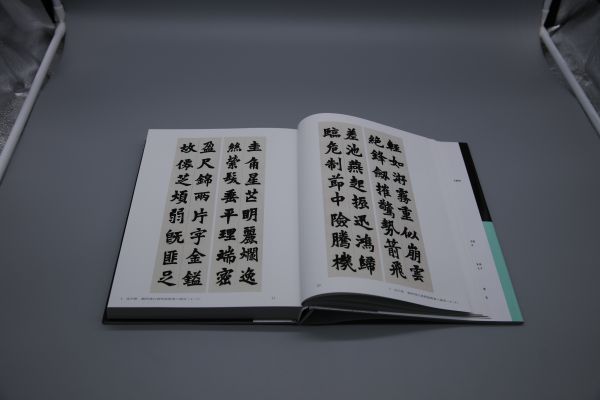 輕如游霧重似崩雲
絕鋒劍摧驚勢箭飛
差池燕起振迅鴻歸
臨危制節中險騰機
圭角星芒明麗爛逸
絲縈髮垂平理端密
盈尺錦兩片字金鎰
故僊芝煩弱既匪足